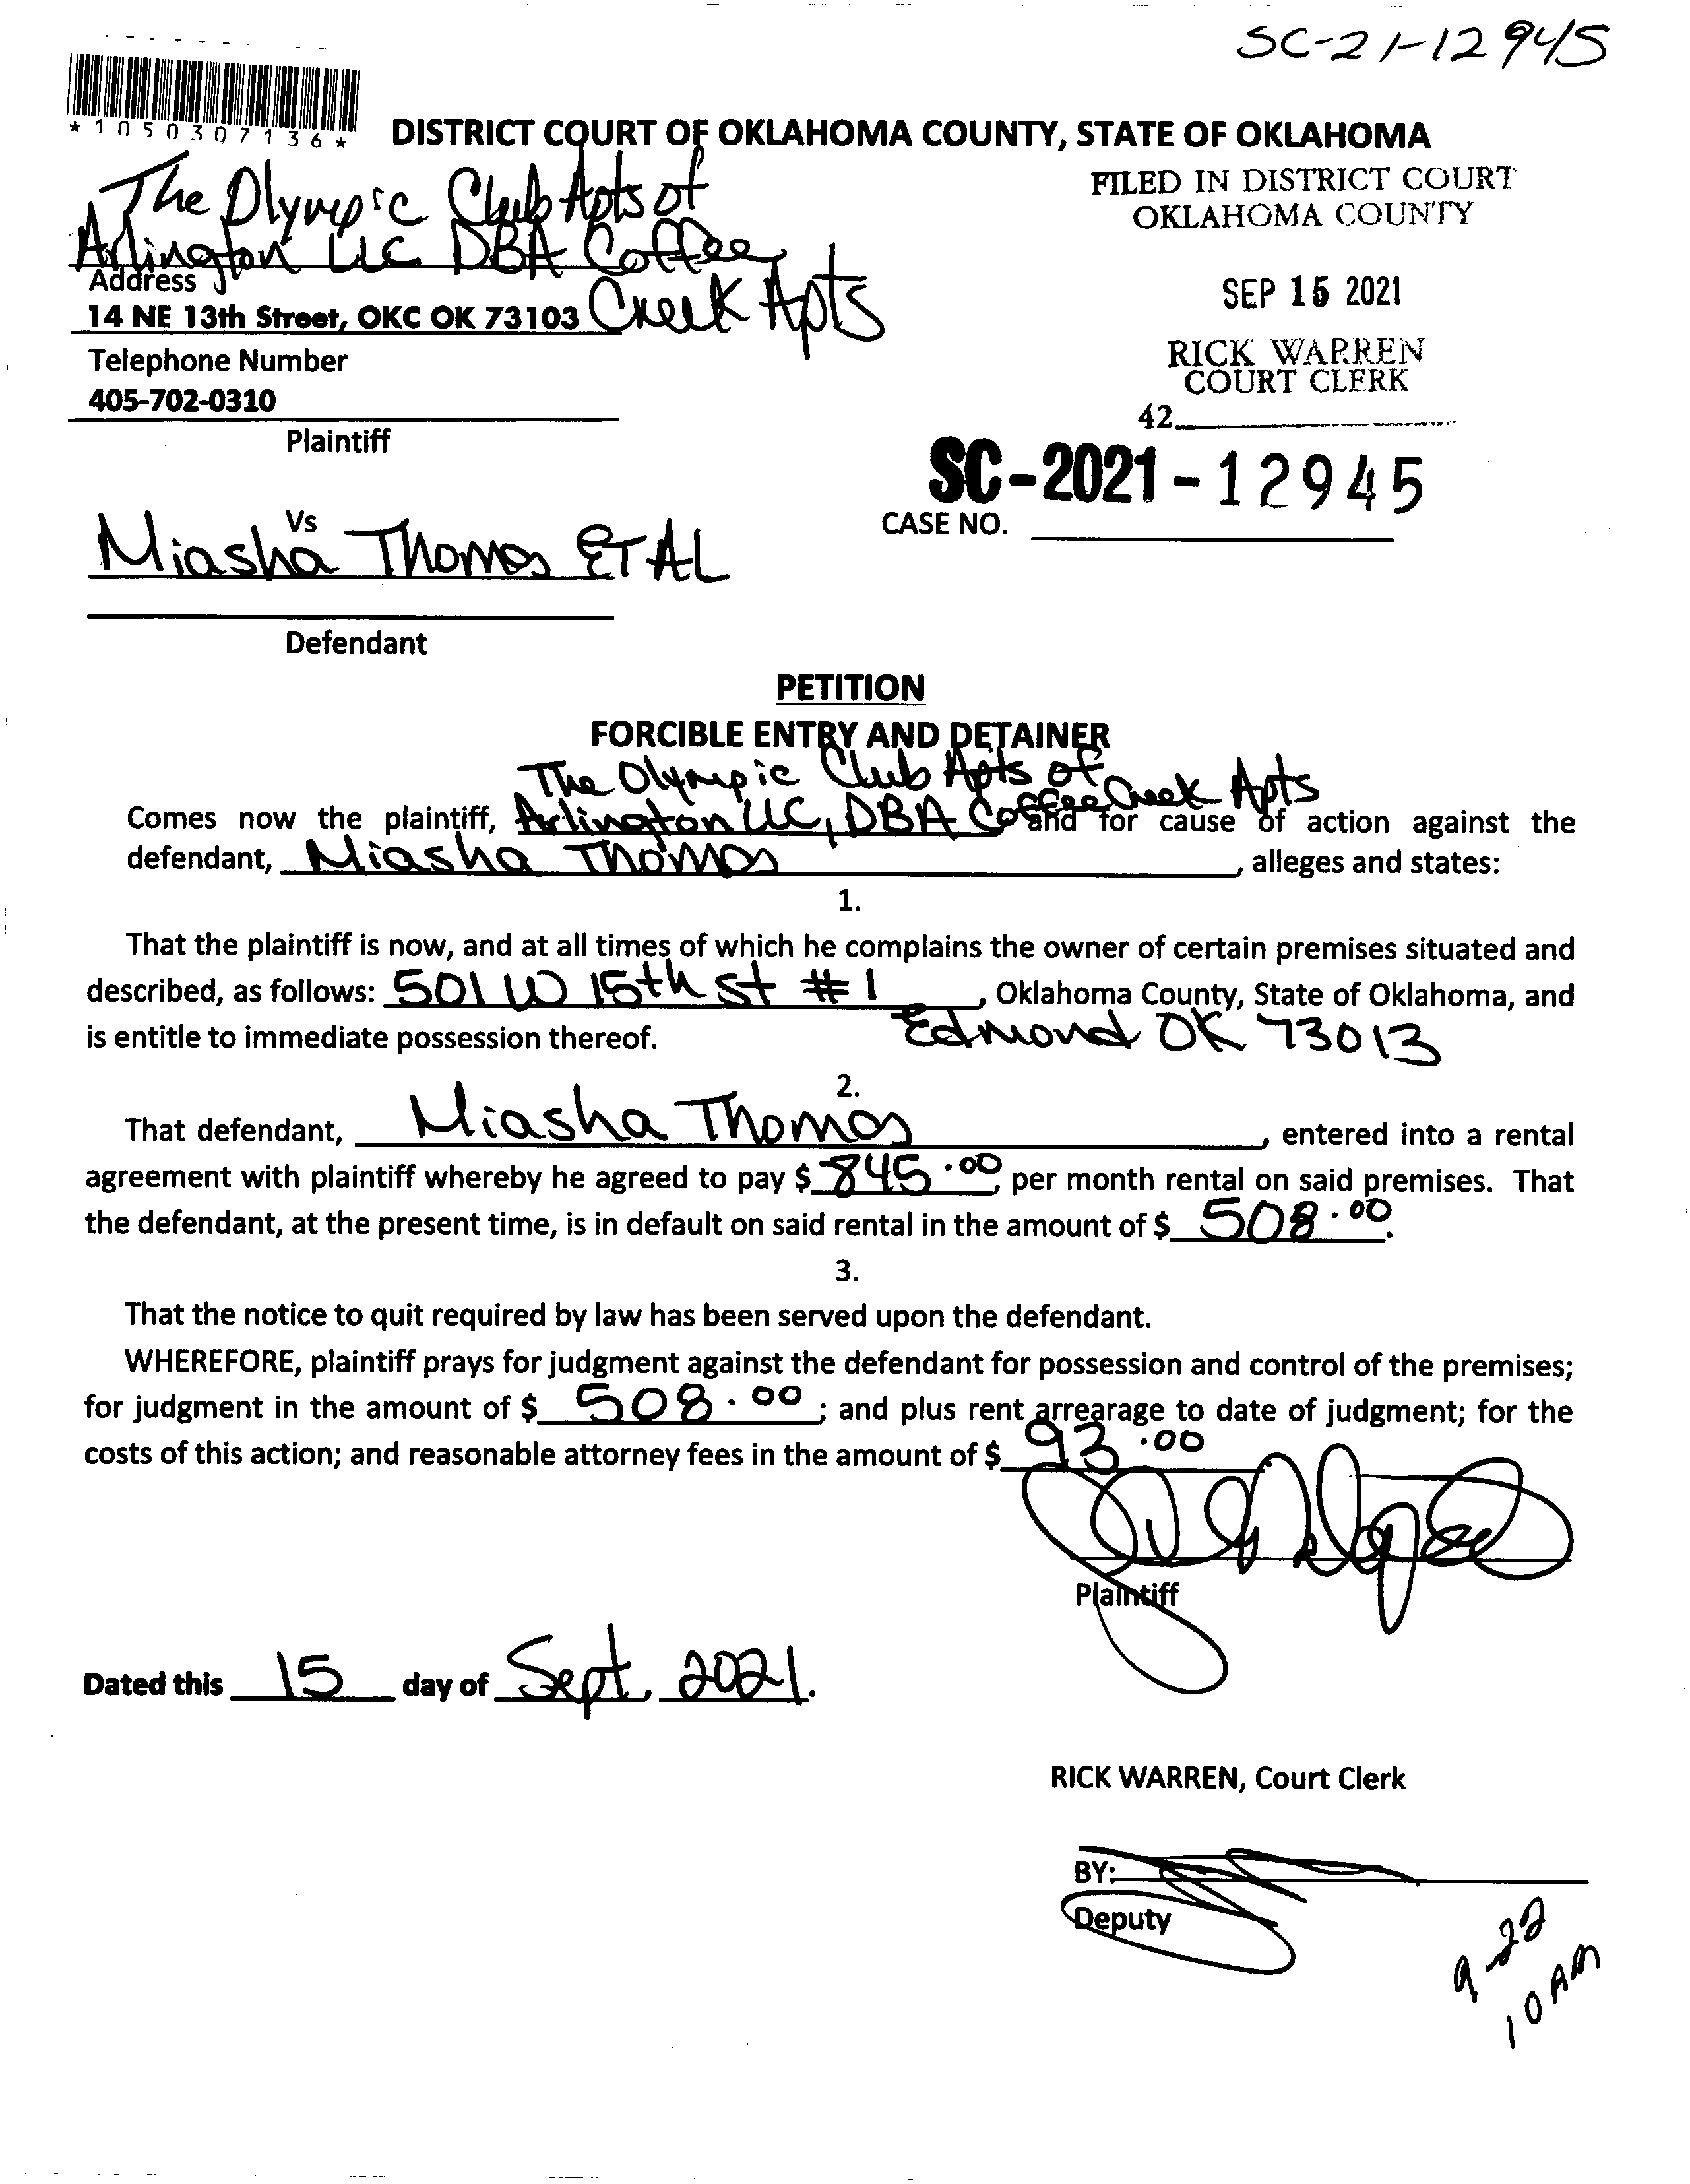 SC-21-12945
*1050307136*
DISTRICT COURT OF OKLAHOMA COUNTY, STATE OF OKLAHOMA
The Olympic Club Apts of
Arlington LLC DBA Coffee
Creek Apts
Address
14 NE 13th Street, OKC OK 73103
Telephone Number
405-702-0310
Plaintiff
FILED IN DISTRICT COURT
OKLAHOMA COUNTY
SEP 15 2021
RICK WARREN
COURT CLERK
42
SC-2021-12945
CASE NO.
Vs
Miasha Thomas ET AL
Defendant
PETITION
FORCIBLE ENTRY AND DETAINER
The Olympic Club Apts of
Comes now the plaintiff, Arlington LLC, DBA Coffee Creek Apts and for cause of action against the
defendant, Miasha Thomas, alleges and states:
1.
That the plaintiff is now, and at all times of which he complains the owner of certain premises situated and
described, as follows: 501 W 15th st #1, Oklahoma County, State of Oklahoma, and
is entitle to immediate possession thereof. Edmond OK 73013
2.
That defendant, Miasha Thomas, entered into a rental
agreement with plaintiff whereby he agreed to pay $ 845.00, per month rental on said premises. That
the defendant, at the present time, is in default on said rental in the amount of $ 508.00.
3.
That the notice to quit required by law has been served upon the defendant.
WHEREFORE, plaintiff prays for judgment against the defendant for possession and control of the premises;
for judgment in the amount of $ 508.00; and plus rent arrearage to date of judgment; for the
costs of this action; and reasonable attorney fees in the amount of $ 93.00
Plaintiff
Dated this 15 day of Sept, 2021.
RICK WARREN, Court Clerk
BY:
Deputy
9-22
10 AM